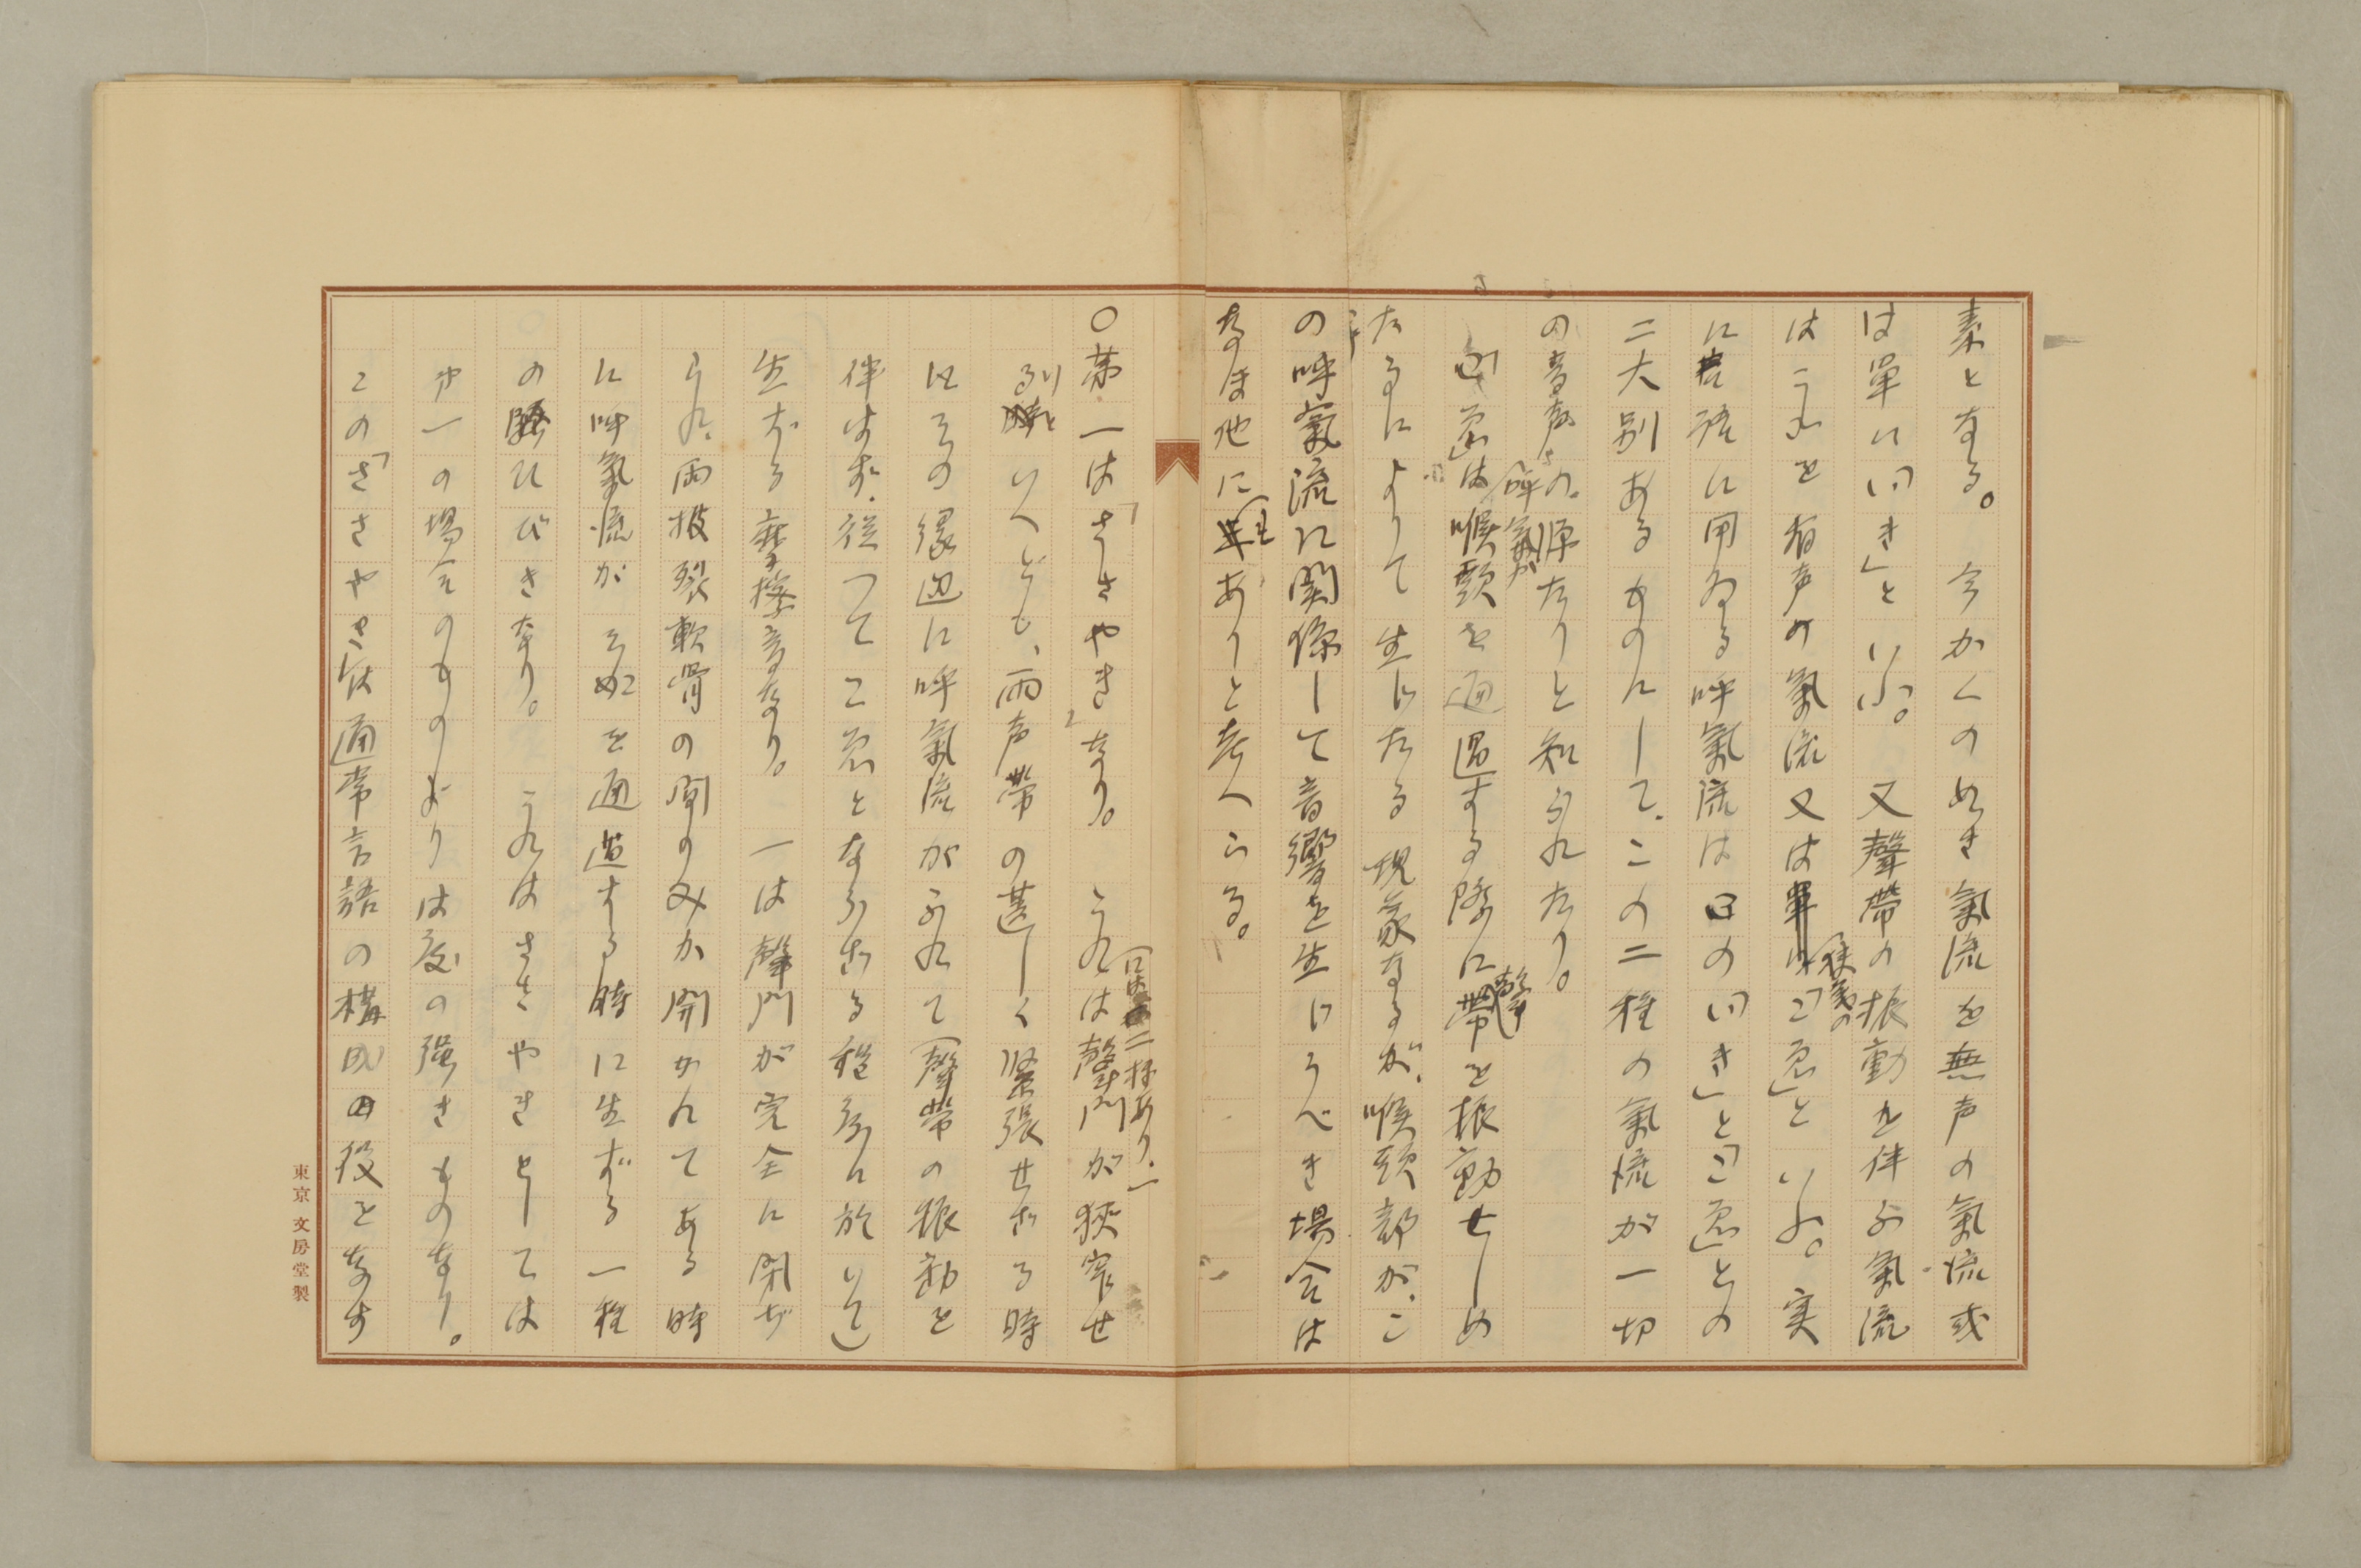 素となる。 今かくのぬき氣流を無声の氣流或
は單に「いき」といふ。 又聲帶の振動を伴ふ氣流
はこれを有声の氣流又は狹義の「こゑ」といふ。実
に言語に用ゐる呼氣流は口の「いき」と「こゑ」との
二大別あるものにして、この二種の氣流が一切
の音声の源たりと知られたり。
「こゑ」は呼氣が喉頭を通過する際に聲帶を振動せしめ
たるによりて生じたる現象なるが、喉頭部が、こ
の呼氣流に関係して音響を生じうべき場合は
なほ他に二種ありと考へらる。
○第一は「さゝやき」なり。 これには二様あり、一は聲門が狹窄せ
る時といへども、両声帶の甚しく緊張せざる時
はその緣邊に呼氣流がふれて(聲帶の振動を
伴はず、從つてこゑとならざる程度に於いて)
生ずる摩擦音なり。 一は聲門が完全に閉ぢ
られ、両披裂軟骨の間のみが開かれてある時
に呼氣流がそこを通過する時に生ずる一種
の騒ひびきなり。 これはさゝやきとしては
第一の場合のものよりは度の强きものなり。
この「さゝやき」は通常言語の構成の役をなす
東京 文房堂製